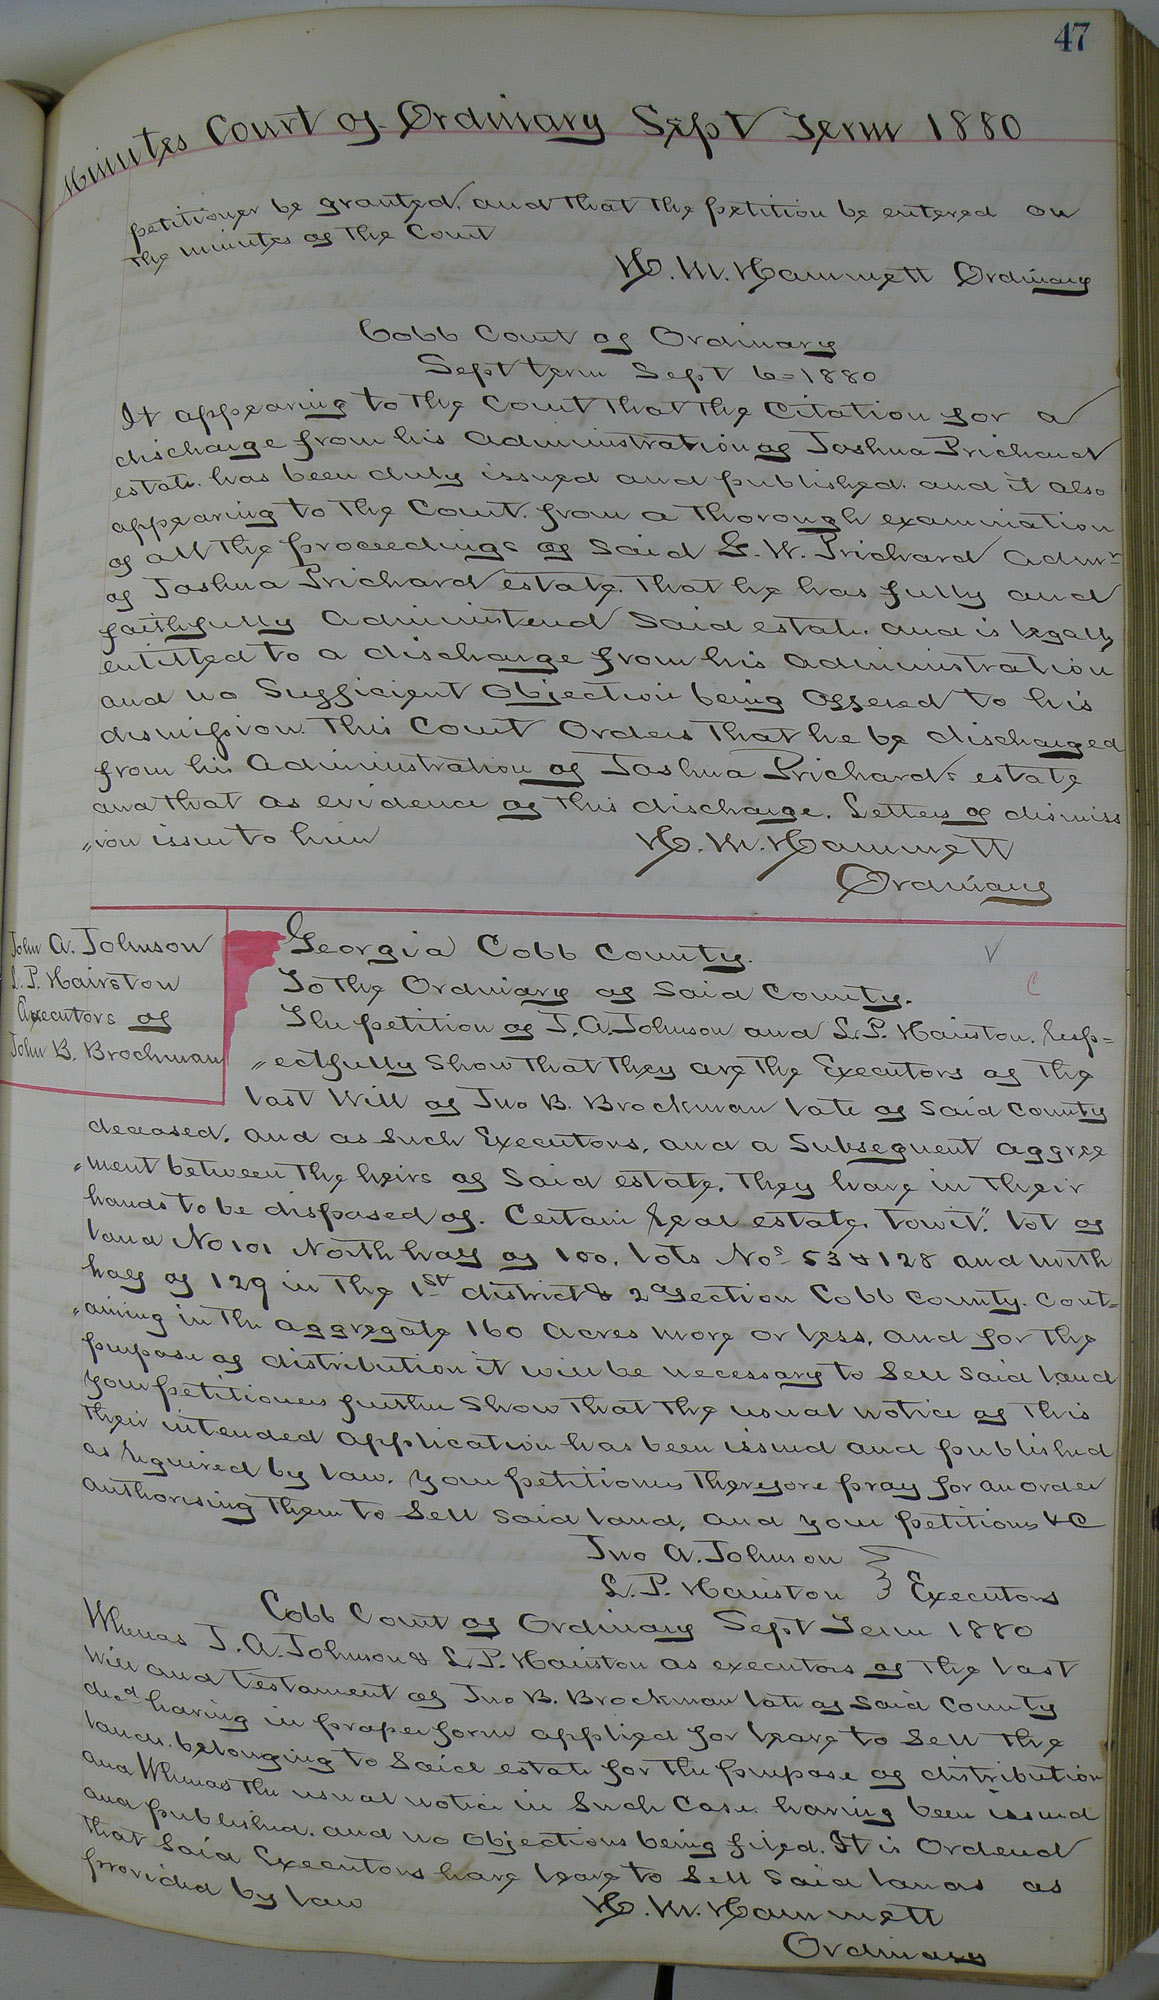 47
Minutes Court of Ordinary Sept Term 1880
petitioner be granted. and that the petition be entered on
the minutes of the Court
H. M. Hammett Ordinary
Cobb Court of Ordinary
Sept term Sept 6=1880
It appearing to the Court that the Citation for a
discharge from his Administration of Joshua Prichard
estate. has been duly issued and published. and it also
appearing to the Court. from a thorough examination
of all the proceedings of Said G. W. Prichard Admr
of Joshua Prichard estate. that he has fully and
faithfully Administered Said estate. and is legally
entitled to a discharge from his Administration
and no Sufficient Objection being Offered to his
dismission. This Court Orders that he be discharged
from his Administration of Joshua Prichards estate
and that as evidence of this discharge. Letters of dismiss
"ion issue to him
H. M. Hammett
Ordinary
John A. Johnson
L. P. Hairston
Executors of
John B. Brockman
Georgia Cobb County.
To the Ordinary of Said County.
The petition of J. A. Johnson and L. P. Hairston. Resp=
"ectfully Show that they are the Executors of the
last Will of Jno B. Brockman late of Said County
deceased. and as Such Executors, and a Subsequent aggree
"ment between the heirs of Said estate. they have in their
hands to be disposed of. Certain Real estate. towit". lot of
land No 101 North half of 100. lots Nos 53 & 128 and north
half of 129 in the 1st district & 2d Section Cobb County. cont=
"aining in the aggregate 160 Acres more or less, and for the
purpose of distribution it will be necessary to Sell Said land
your petitioners further Show that the usual notice of this
their intended application has been issued and published
as Required by law. your petitioners therefore pray for an order
authorising them to Sell Said land, and your petitions &C
Jno A. Johnson
L. P. Hairston } Executors
Cobb Court of Ordinary Sept Term 1880
Whereas J. A. Johnson & L. P. Hairston as executors of the last
Will and testament of Jno B. Brockman late of Said County
decd having in proper form applied for leave to Sell the
lands. belonging to Said estate for the purpose of distribution
and Whereas the usual notice in Such Case having been issued
and published. and no objections being filed. It is Ordered
that Said Executors have leave to Sell Said lands as
provided by law
H. M. Hammett
Ordinary